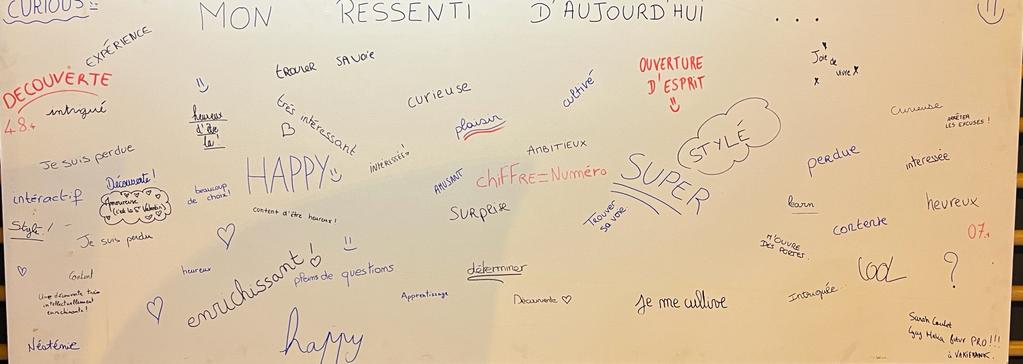 CURIOUS
MON RESSENTI D'AUJOURD'HUI ...
EXPÉRIENCE
DECOUVERTE
48.
intrigué
heureux
d'être
là!
trouver sa voie
très intéressant
curieuse
cultivé
OUVERTURE
D'ESPRIT
Joie de
vivre
curieuse
ARRÊTER
LES EXCUSES!
plaisir
STYLÉ
Je suis perdue
HAPPY
INTERESSÉE!
AMBITIEUX
perdue
interessée
intéractif
Découverte!
Amoureuse
(c'est la St Valentin)
beaucoup
de choix!
AMUSANT
CHIFFRE=Numéro
SUPER
learn
heureux
Style!
Je suis perdu
content d'être heureux!
SURPRISE
Trouver
sa voie
contente
07.
M'OUVRE
DES PORTES.
Content
heureux
enrichissant!
pleins de questions
déterminer
COOL
?
Une découverte très
intellectuellement
enrichissante!
Apprentissage
Decouverte
Je me cultive
Intriguée..
Néoténie
happy
PRO!!!